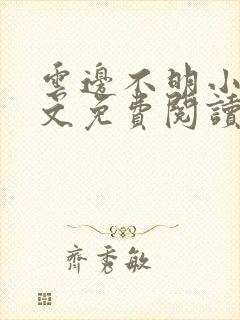 雲邊不明小
文免費閱讀
齊秀敏